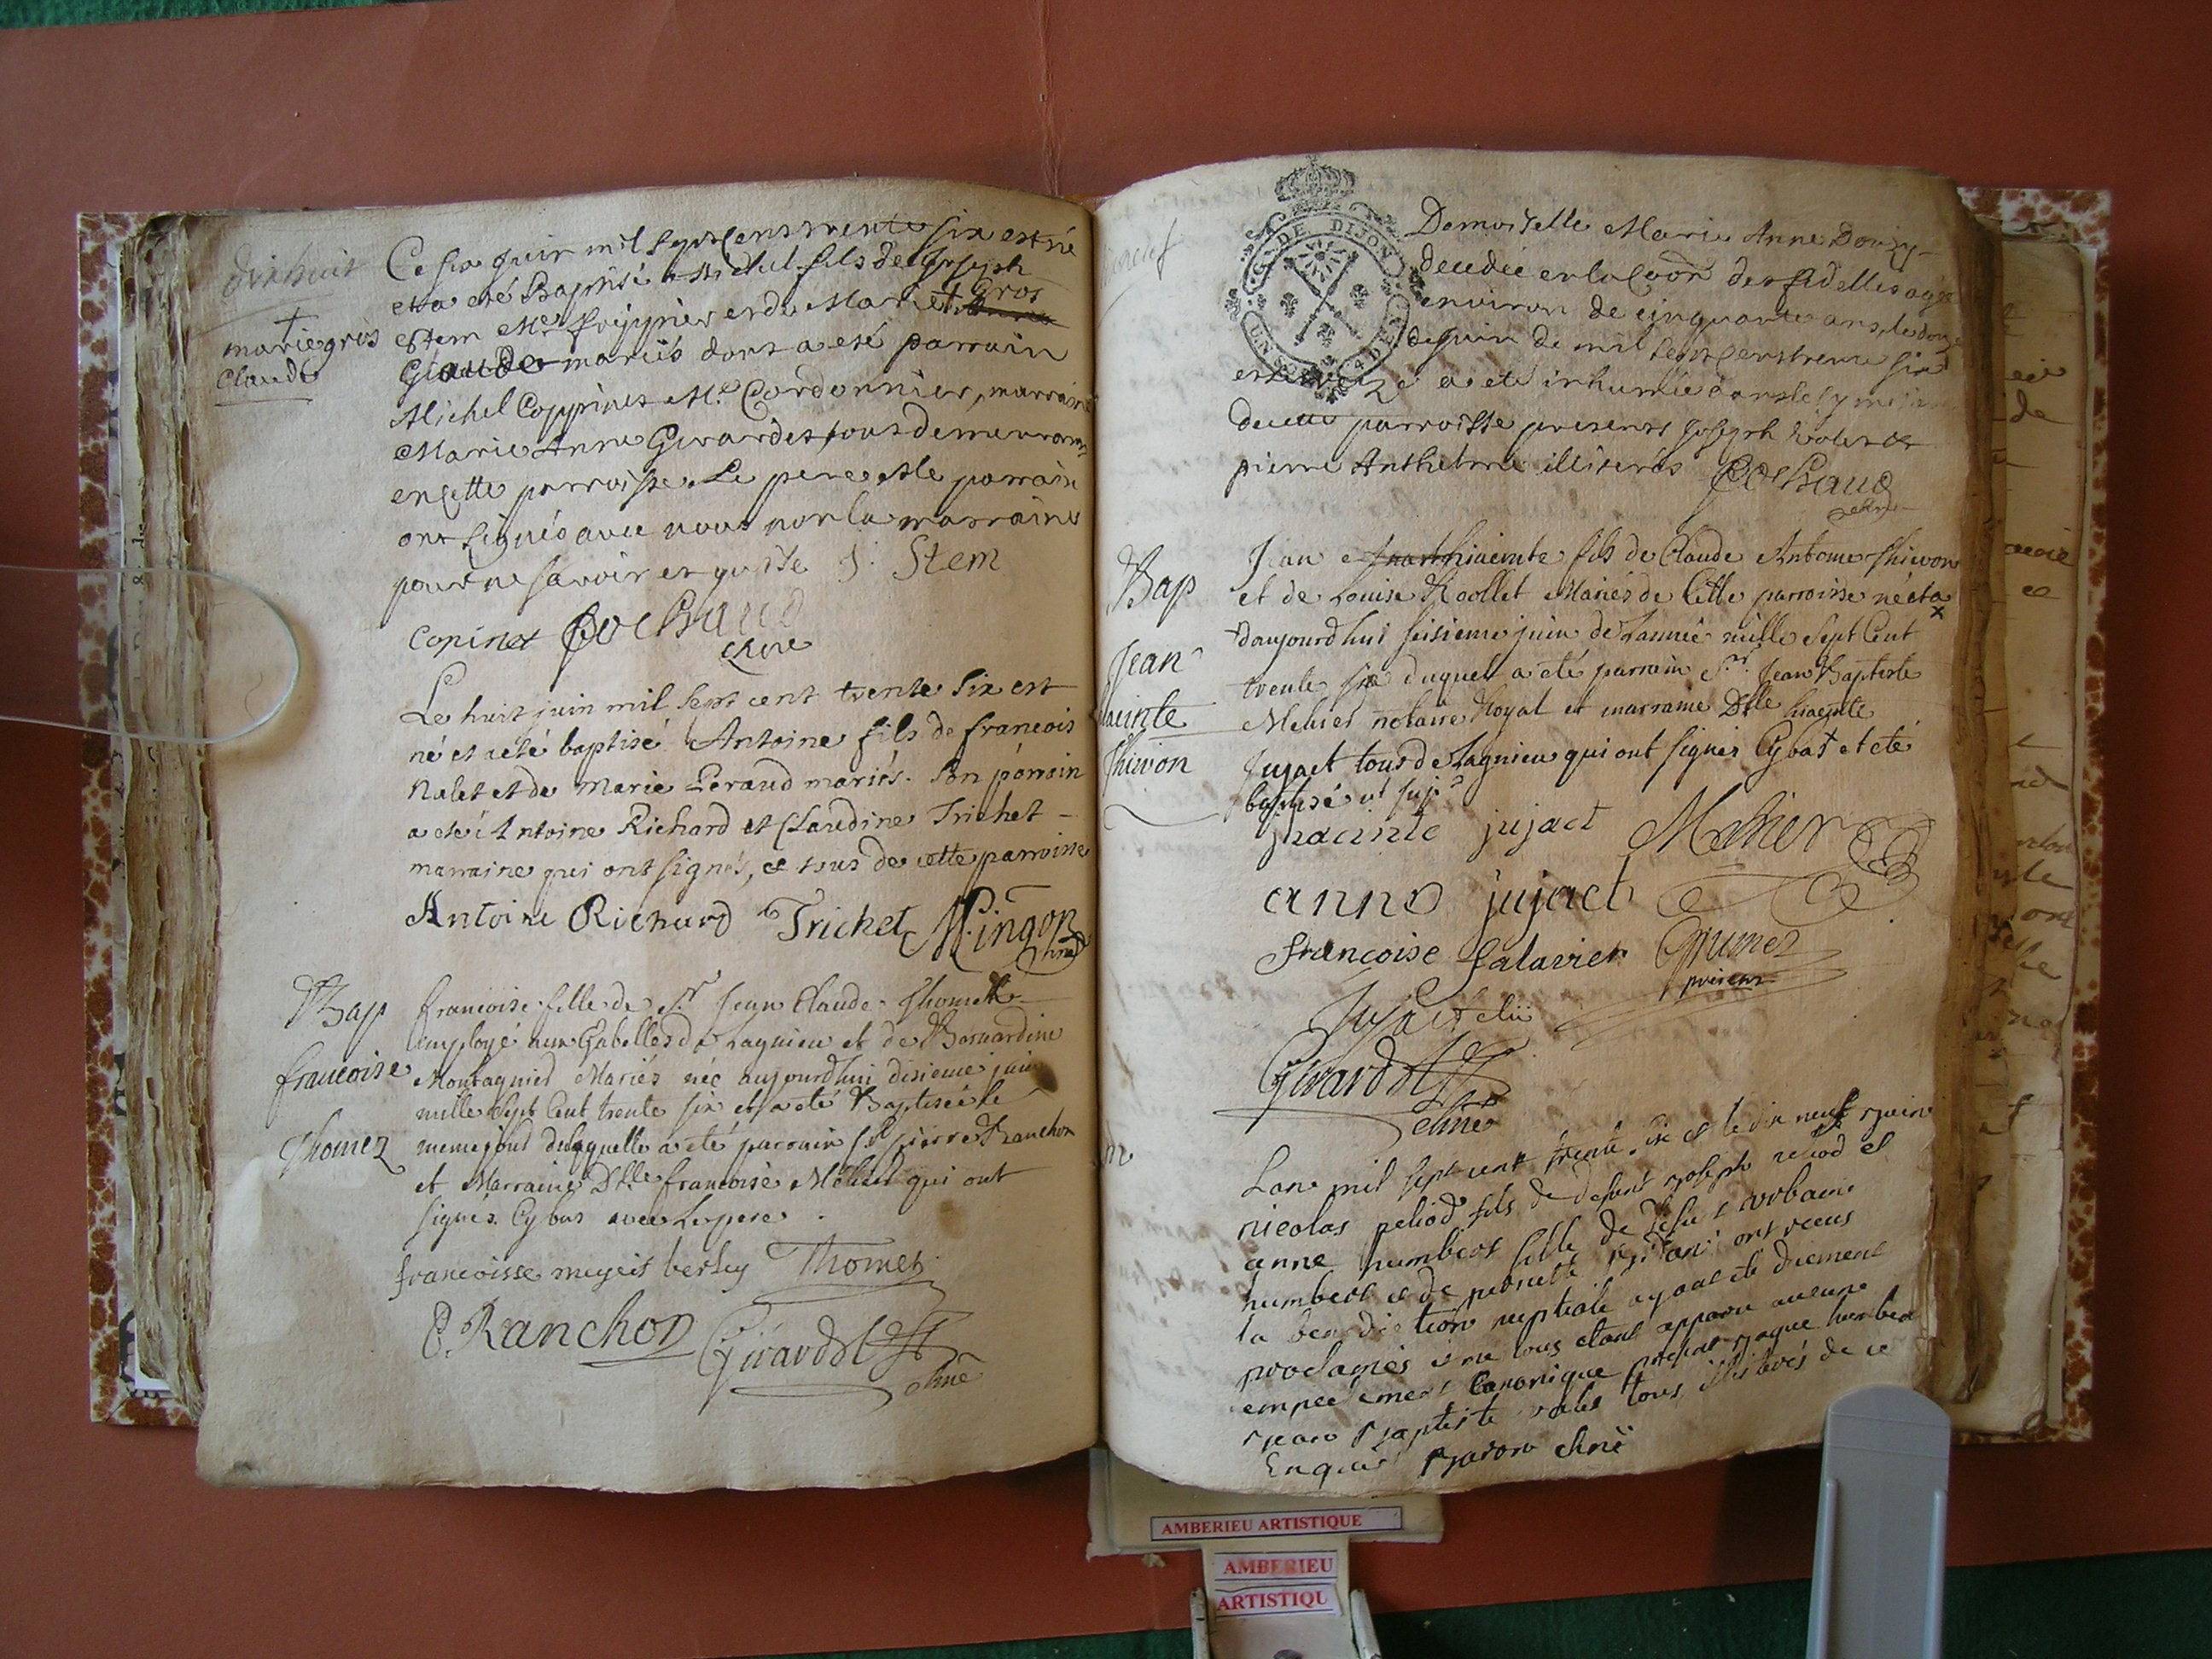 dixhuit
Ce six juin mil sept cens trente six est né
et a eté Baptisé Michel fils de Joseph
Stem Me frippier et de Marie Gros
Glaude mariés dont a eté parrain
Michel Coppinet Me Cordonnier, marraine
Marie Anne Girardet tous demeurants
en cette parroisse Le pere et le parrain
ont signés avec nous non la marraine
pour ne savoir enquise J. Stem
copinet Cochaud
cure
+
marie gros
Claude
Le huit juin mil sept cent trente six est
né et a eté baptisé Antoine fils de francois
Nalet et de Marie Peraud mariés. Son parrain
a eté Antoine Richard et Claudine Trichet
marraine qui ont signés, et tous de cette parroisse
Antoine Richard Trichet Mingon
Bap
francoise
Thomez
francoise fille de Sr Jean Claude Thomez
employé aux Gabelles de Lagnieu et de Bernardine
Montagnied Mariés née aujourdhui disieme juin
mille Sept Cent trente six et a eté Baptisée le
meme jour de laquelle a eté parrain Sr pierre Ranchon
et Marraine Dlle francoise Méhier qui ont
signés Cy bas avec Le pere
francoisse Thomez
P. Ranchon Girardot
G. DE DIJON
Demoiselle Marie Anne
decedée en la Coon des fidelles agée
environ de cinquante ans, le douze
de juin de mil sept cens trente six
et le treize a eté inhumée dans le
de cette parroisse presents Joseph et
pierre Anthelme illiterés Cochaud
Bap
Jean
hiacinte
Thivon
Jean hiacinte fils de Claude Antoine Thivon
et de Louise Mariés de Cette parroisse né
daujourdhui seisieme juin de Lannée mille Sept Cent
trente six duquel a eté parrain Sr. Jean Baptiste
Mehier notaire Royal et marraine Dlle hiacinte
Jujact tous de Lagnieu qui ont signés Cy bas et eté
baptisé
hacinte jujact Mehier
anne jujact
francoise Salavier Grumez
prieur
Jujact
Girardot
Lan mil sept cent trente six et le dix neuf juin
nicolas peliod fils de defunt joseph peliod et
anne humbert fille de defunt urbain
humbert et de pernette ont receus
la benediction nuptiale ayant eté duement
proclamés et ne nous etant apparu aucune
empechement Canonique present jaque humbert
jean Baptiste tous illiterés de ce
Enquis
AMBERIEU ARTISTIQUE
AMBERIEU
ARTISTIQU